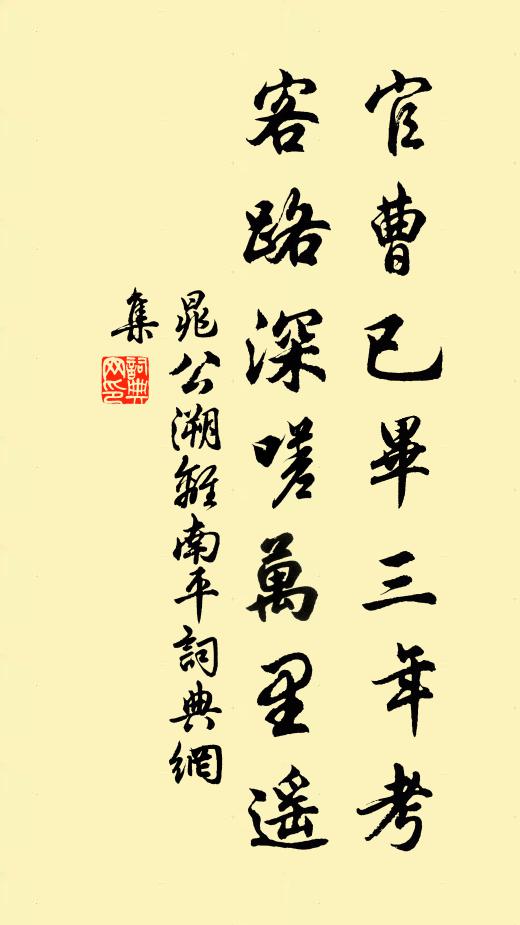 官曹已畢三年考
客路深嗟萬里遥
晁公溯離南平詞典網
集
詞典
网印